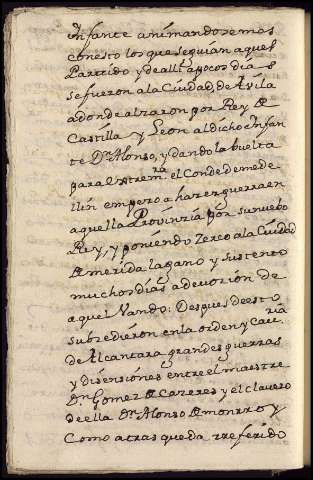 infante animandosemas
conesto los que seguian aquel
Partido y de alli apocos dias
sefueron ala Ciudad, de Avila
adonde alzaron por Rey de
Castilla y Leon al dicho Infan
te Dn. Alonso, y dando la buelta
para extremra. el Conde demede
llin empezo a hazer guerra en
aquella Provinzia por su nuebo
Rey, y poniendo Zerco ala Ciudad
de merida la gano y sustento
muchos dias a devozion de
aquel Vando: Despues de esto
subzedieron en la orden y Cavria.
de Alcantara grandes guerras
y disensiones entre el maestre
Dn. Gomez de Cazeres y el clavero
de ella Dn. Alonso de monrroy
Como atras queda rreferido